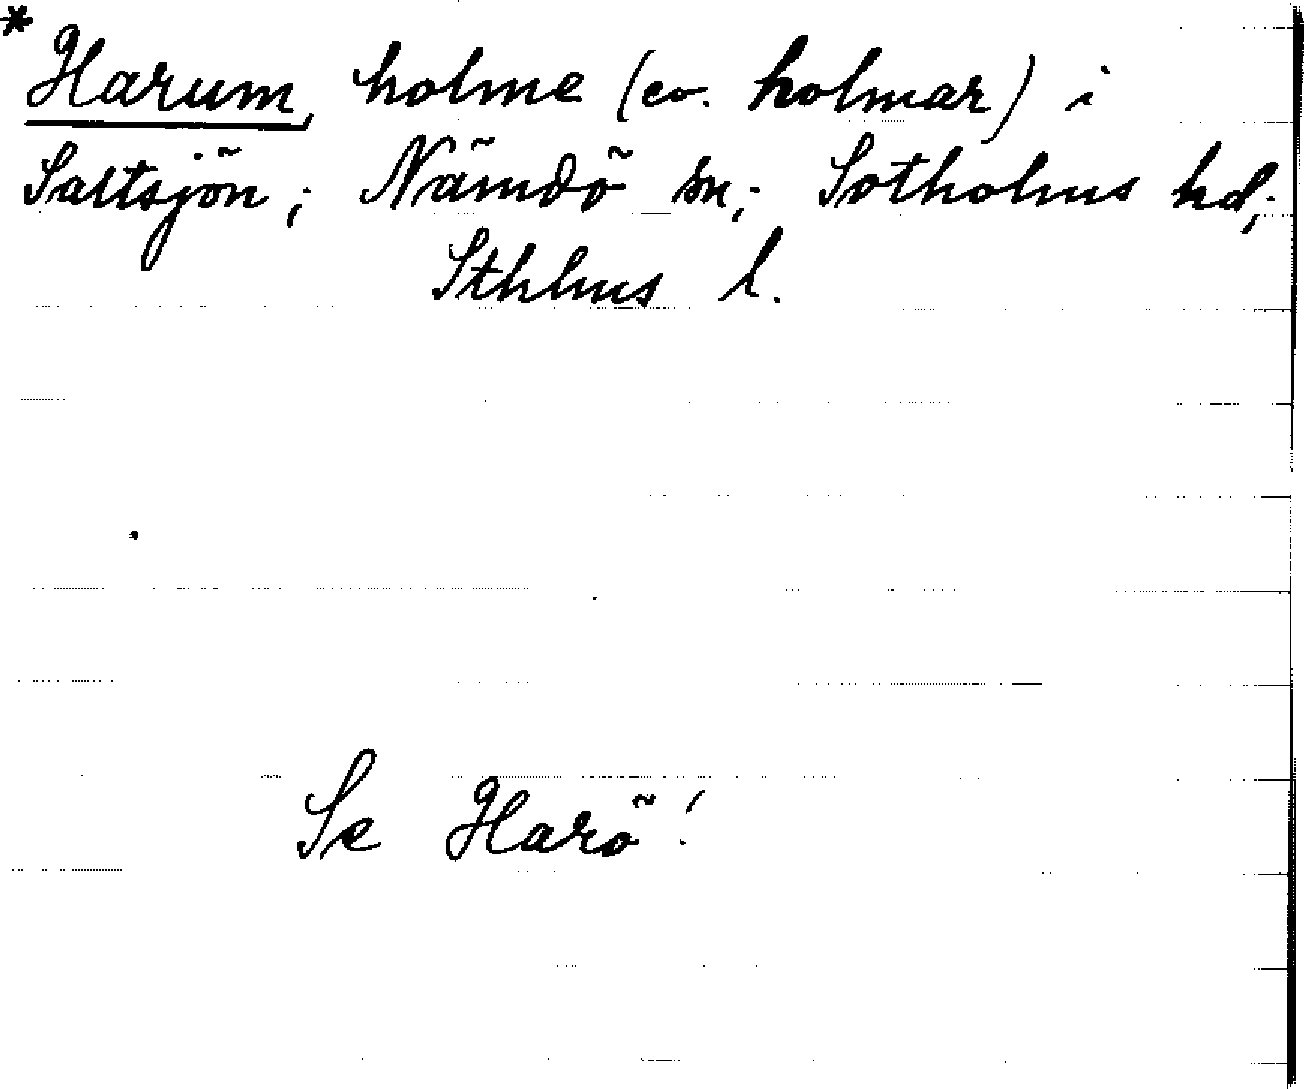 * Harum, holme (ev. holmar) i
Saltsjön; Nämdö sn; Sotholms hd;
Sthlms l.
Se Harö!